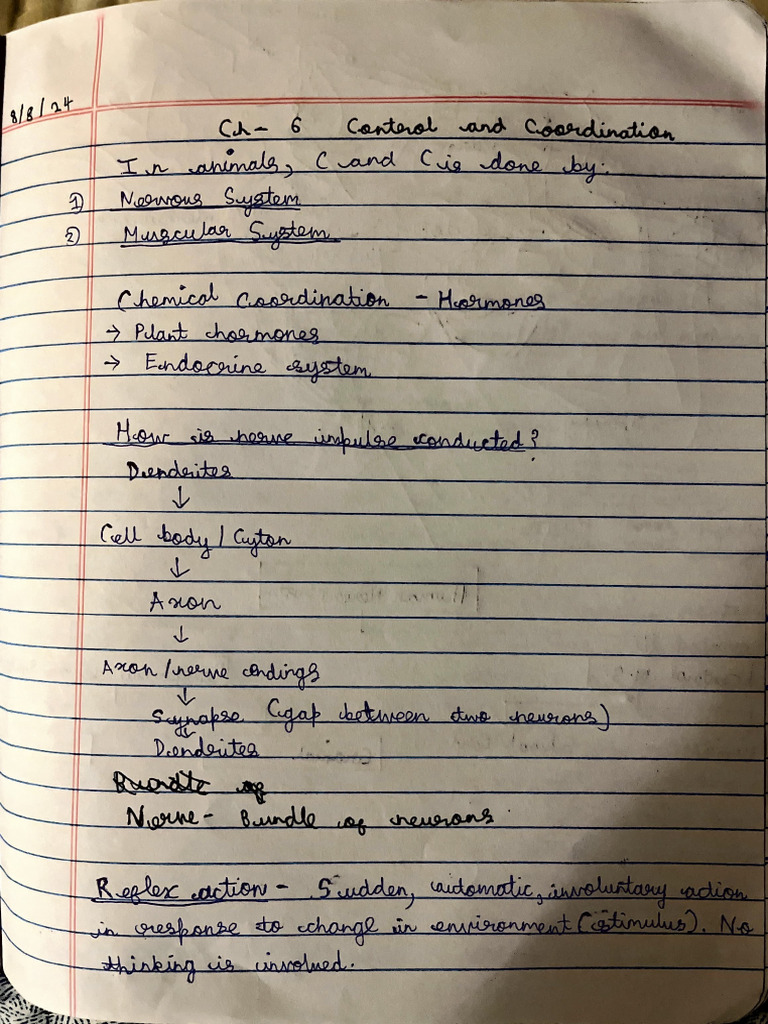 8/8/24
Ch- 6 Control and Coordination
In animals, C and C is done by:
1) Nervous System
2) Muscular System
Chemical Coordination - Hormones
→ Plant hormones
→ Endocrine system
How is nerve impulse conducted?
Dendrites
↓
Cell body / Cyton
↓
Axon
↓
Axon /nerve endings
↓
Synapse (gap between two neurons)
↓
Dendrites
Bundle of
Nerve- Bundle of neurons.
Reflex action - Sudden, automatic, involuntary action
in response to change in environment (stimulus). No
thinking is involved.